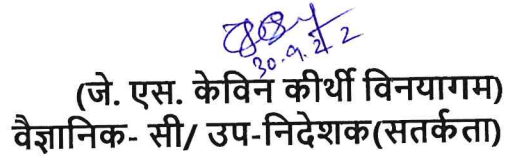 30.9.22
(जे. एस. केविन कीर्थी विनयागम)
वैज्ञानिक- सी/ उप-निदेशक(सतर्कता)